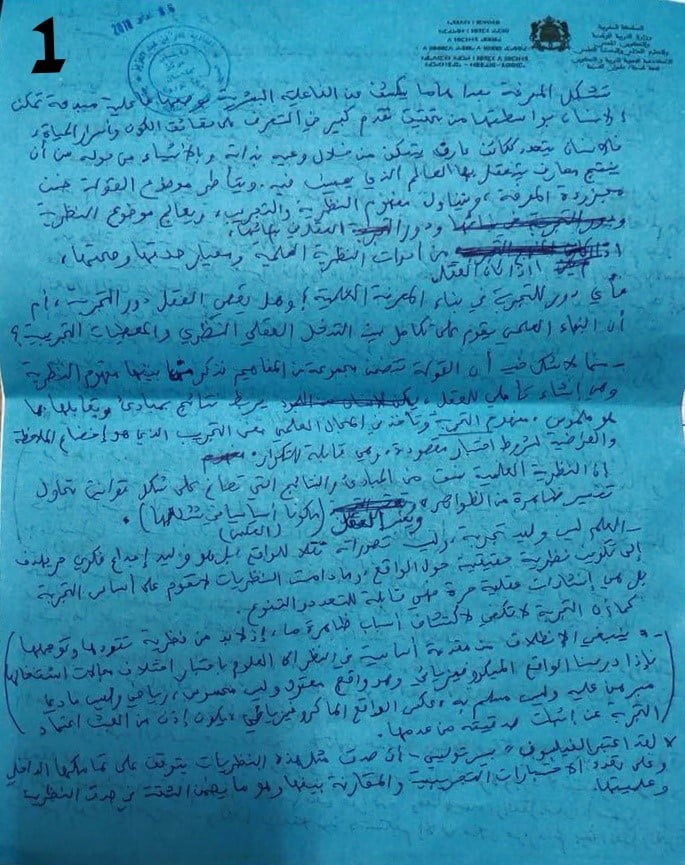 1
المملكة المغربية
وزارة التربية الوطنية
تشكل المعرفة بعدا هاما يكشف عن الفاعلية البشرية بوصفها فاعلية مبدعة تمكن
الإنسان بواسطتها من تحقيق تقدم كبير في التعرف على حقائق الكون وأسرار الحياة،
فالإنسان يتحدد ككائن عارف يتمكن من خلال وعيه بذاته وبالأشياء من حوله من أن
ينتج معارف يتعقل بها العالم الذي يعيش فيه. ويتأطر موضوع القولة ضمن
مجزوءة المعرفة، ويتناول مفهوم النظرية والتجريب، ويعالج موضوع النظرية
ودور العقلان
إذا كان العقل
من أدوات النظرية العلمية ومعيار صدقها وصحتها،
فأي دور للتجربة في بناء المعرفة العلمية؟ وهل يقصي العقل دور التجربة، أم
أن البناء العلمي يقوم على تكامل بين التدخل العقلي النظري والمعطيات التجريبية؟
- مما لا شك فيه أن القولة تتضمن مجموعة من المفاهيم نذكر من بينها مفهوم النظرية
وهي إنشاء تأملي للعقل، يربط نتائج بمبادئ ويقابلها بما
هو ملموس، مفهوم التجربة وتأخذ في المجال العلمي معنى التجريب الذي هو إخضام الملاحظة
والفرضية لشروط اختبار مقصودة، وهي قابلة للتكرار.
إن النظرية العلمية نسق من المبادئ والنتائج التي تصاغ على شكل قوانين تحاول
تفسير ظاهرة من الظواهر، ويعتبر العقل (مكونا أساسيا في تشكلها).
- العلم ليس وليد تجربة، وليست تصوراته نقلا للواقع بل هو وليد إبداع فكري حر يهدف
إلى تكوين نظرية حقيقية حول الواقع، وما دامت النظريات لا تقوم على أساس التجربة
بل هي إنشاءات عقلية حرة فهي قابلة للتعدد والتنوع.
كما أن التجربة لا تكفي لاكتشاف أسباب ظاهرة ما، إذ لابد من نظرية تقودها وتوجهها
ينبغي الانطلاق من مقدمة أساسية في النظر إلى العلوم باعتبار اختلاف مجالات اشتغالها
فإذا درسنا الواقع الميكروفيزيائي وهو واقع معقول وليس محسوس، رياضي وليس ماديا
مبرهن عليه وليس مسلم به، عكس الواقع الماكروفيزيائي، يكون إذن من العبث اعتماد
التجربة عن إثبات حقيقته من عدمها.
لقد اعتبر الفيلسوف "بيير تويليي" أن صدق مثل هذه النظريات يتوقف على تماسكها الداخلي
وعلى تعدد الاختبارات التجريبية والمقارنة بينها وهو ما يضمن الثقة في صدق النظرية
وعلميتها.